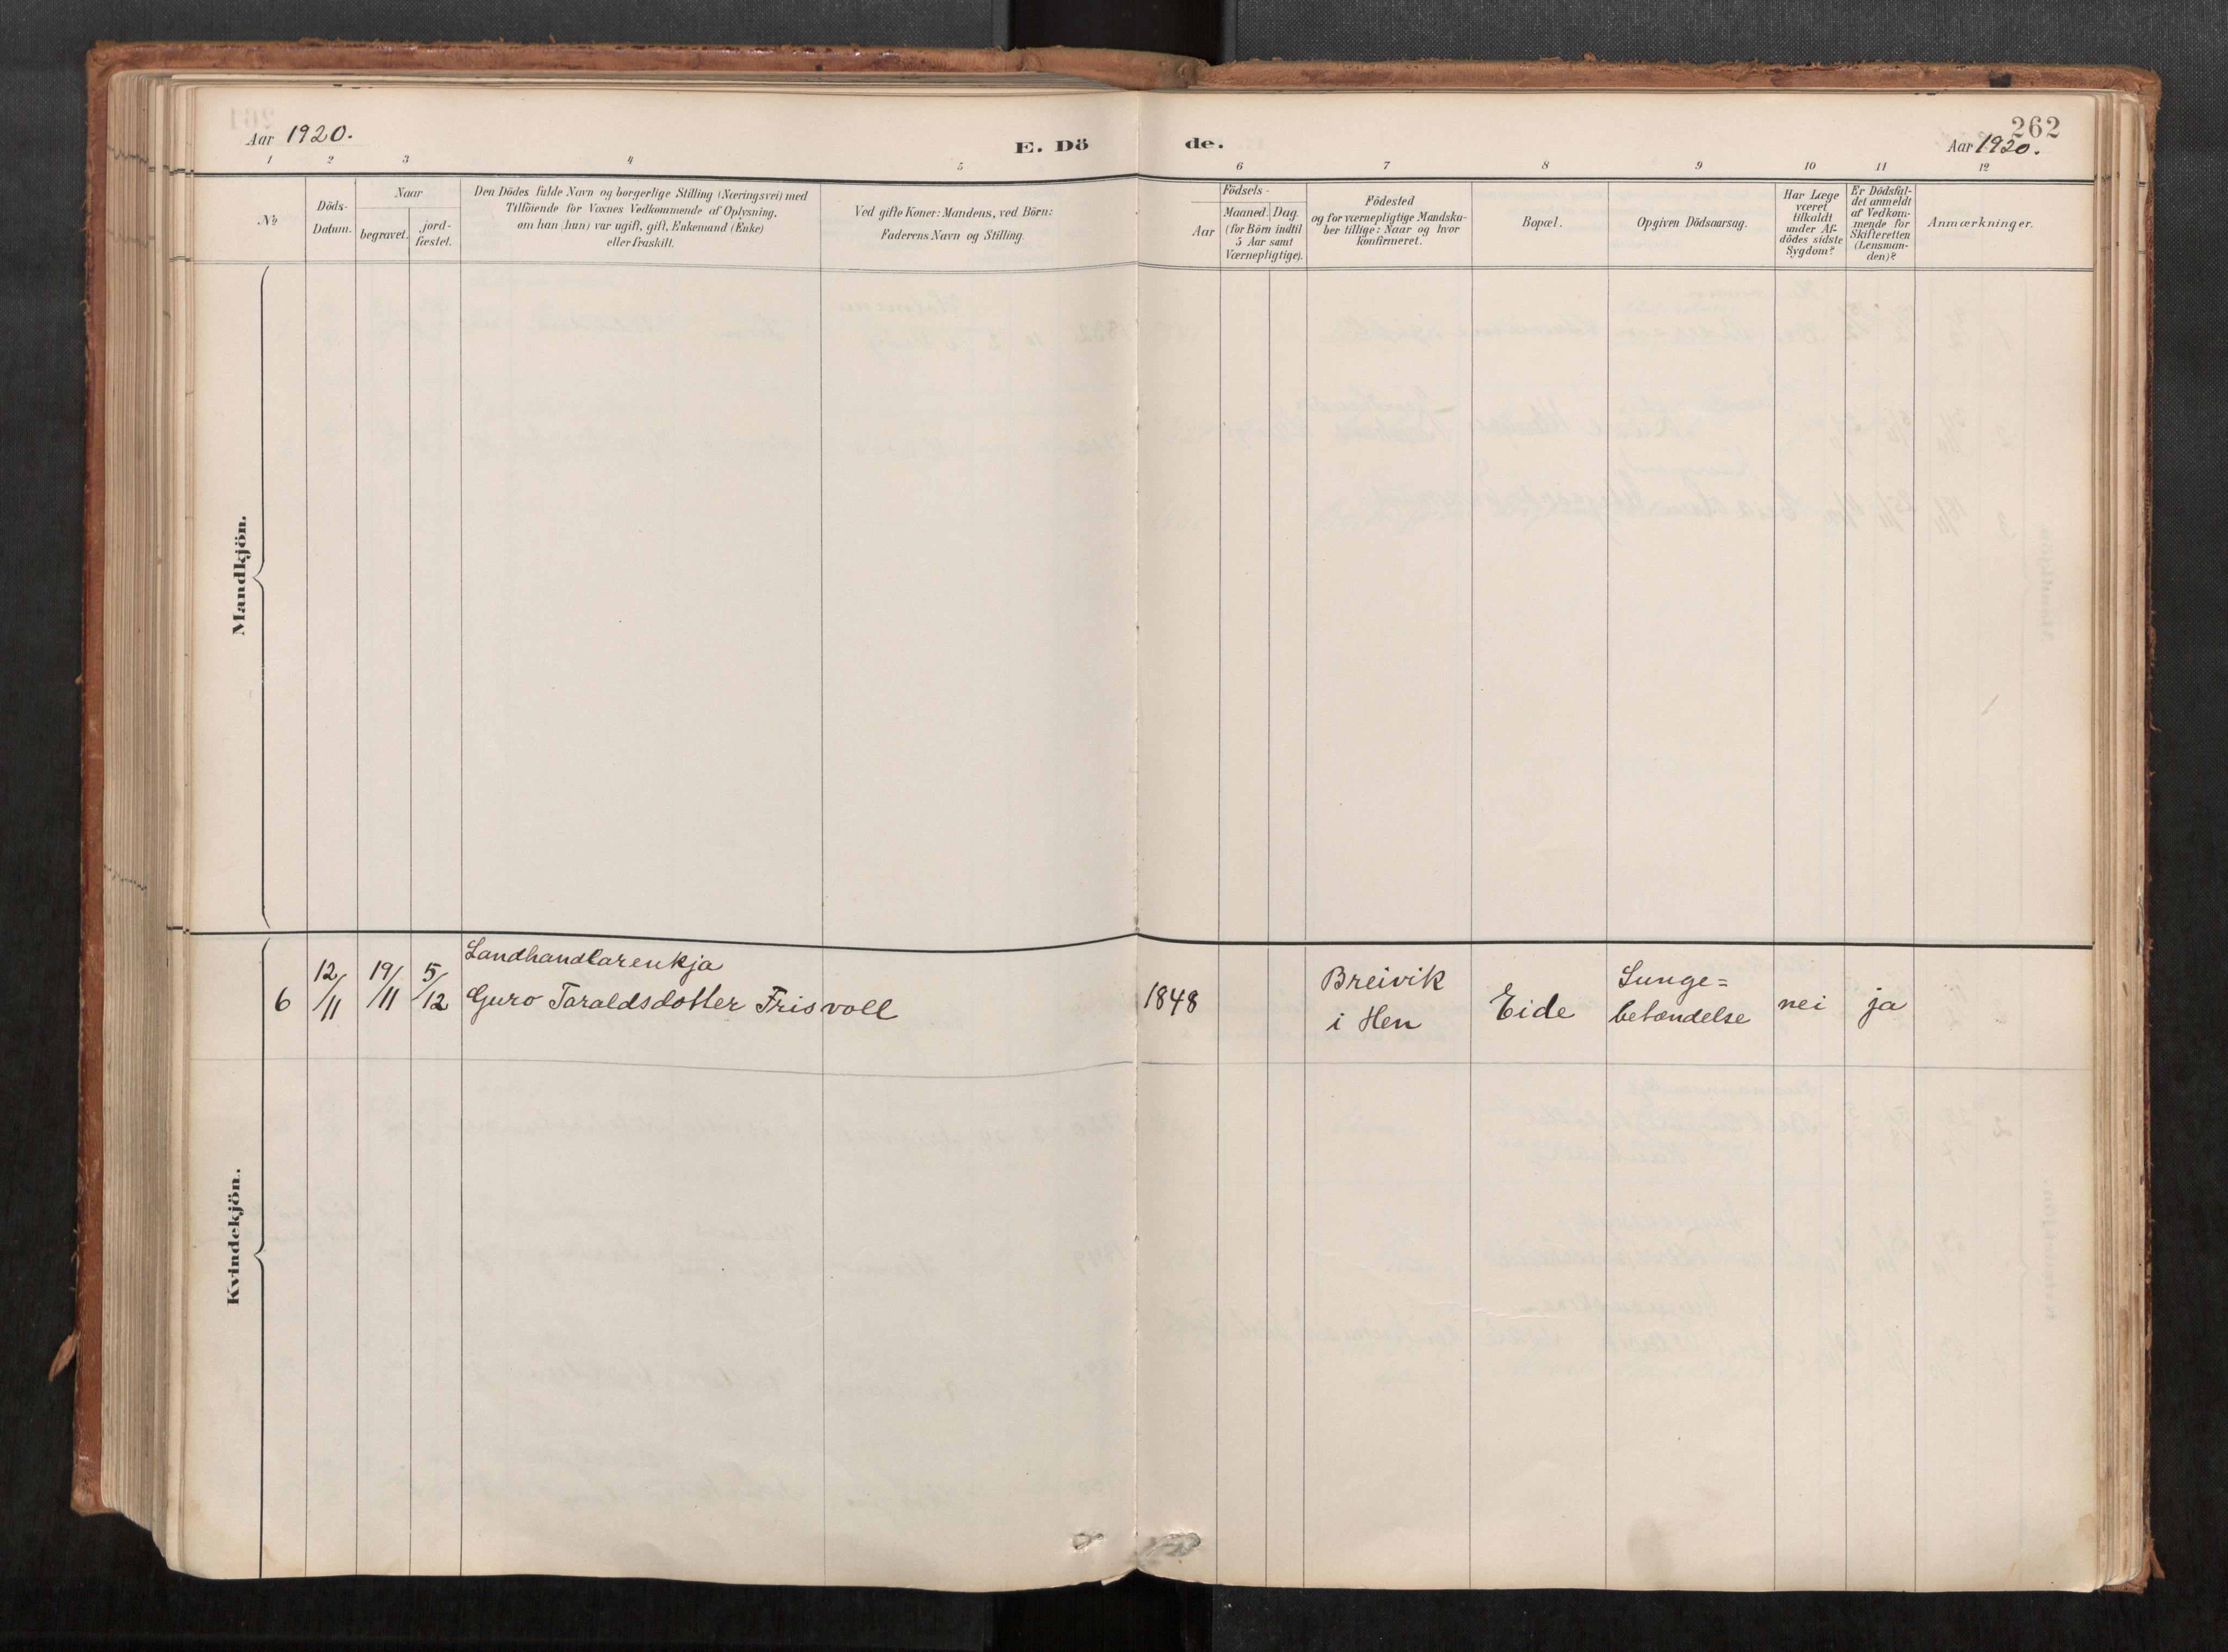 262
Aar 1920.
E. Dö
de.
Aar 1920.
1 2 3 4 5 6 7 8 9 10 11 12
No
Döds-
Datum.
Naar
begravet.
jord-
fæstet.
Den Dödes fulde Navn og borgerlige Stilling (Næringsvei) med
Tilföiende for Voxnes Vedkommende af Oplysning,
om han (hun) var ugift, gift, Enkemand (Enke)
eller fraskilt.
Ved gifte Koner: Mandens, ved Börn:
Faderens Navn og Stilling.
Födsels-
Aar
Maaned. Dag.
(for Börn indtil
5 Aar samt
Værnepligtige).
Födested
og for værnepligtige Mandska-
ber tillige: Naar og hvor
konfirmeret.
Bopæl.
Opgiven Dödsaarsag.
Har Læge
været
tilkaldt
under Af-
dödes sidste
Sygdom?
Er Dödsfal-
det anmeldt
af Vedkom-
mende for
Skifteretten
(Lensman-
den)?
Anmærkninger.
Mandkjön.
Kvindekjön.
Landhandlarenkja
6 12/11 19/11 5/12 Guro Taraldsdotter Frisvoll
1848
Breivik
i Hen
Eide
Lunge=
betændelse
nei
ja